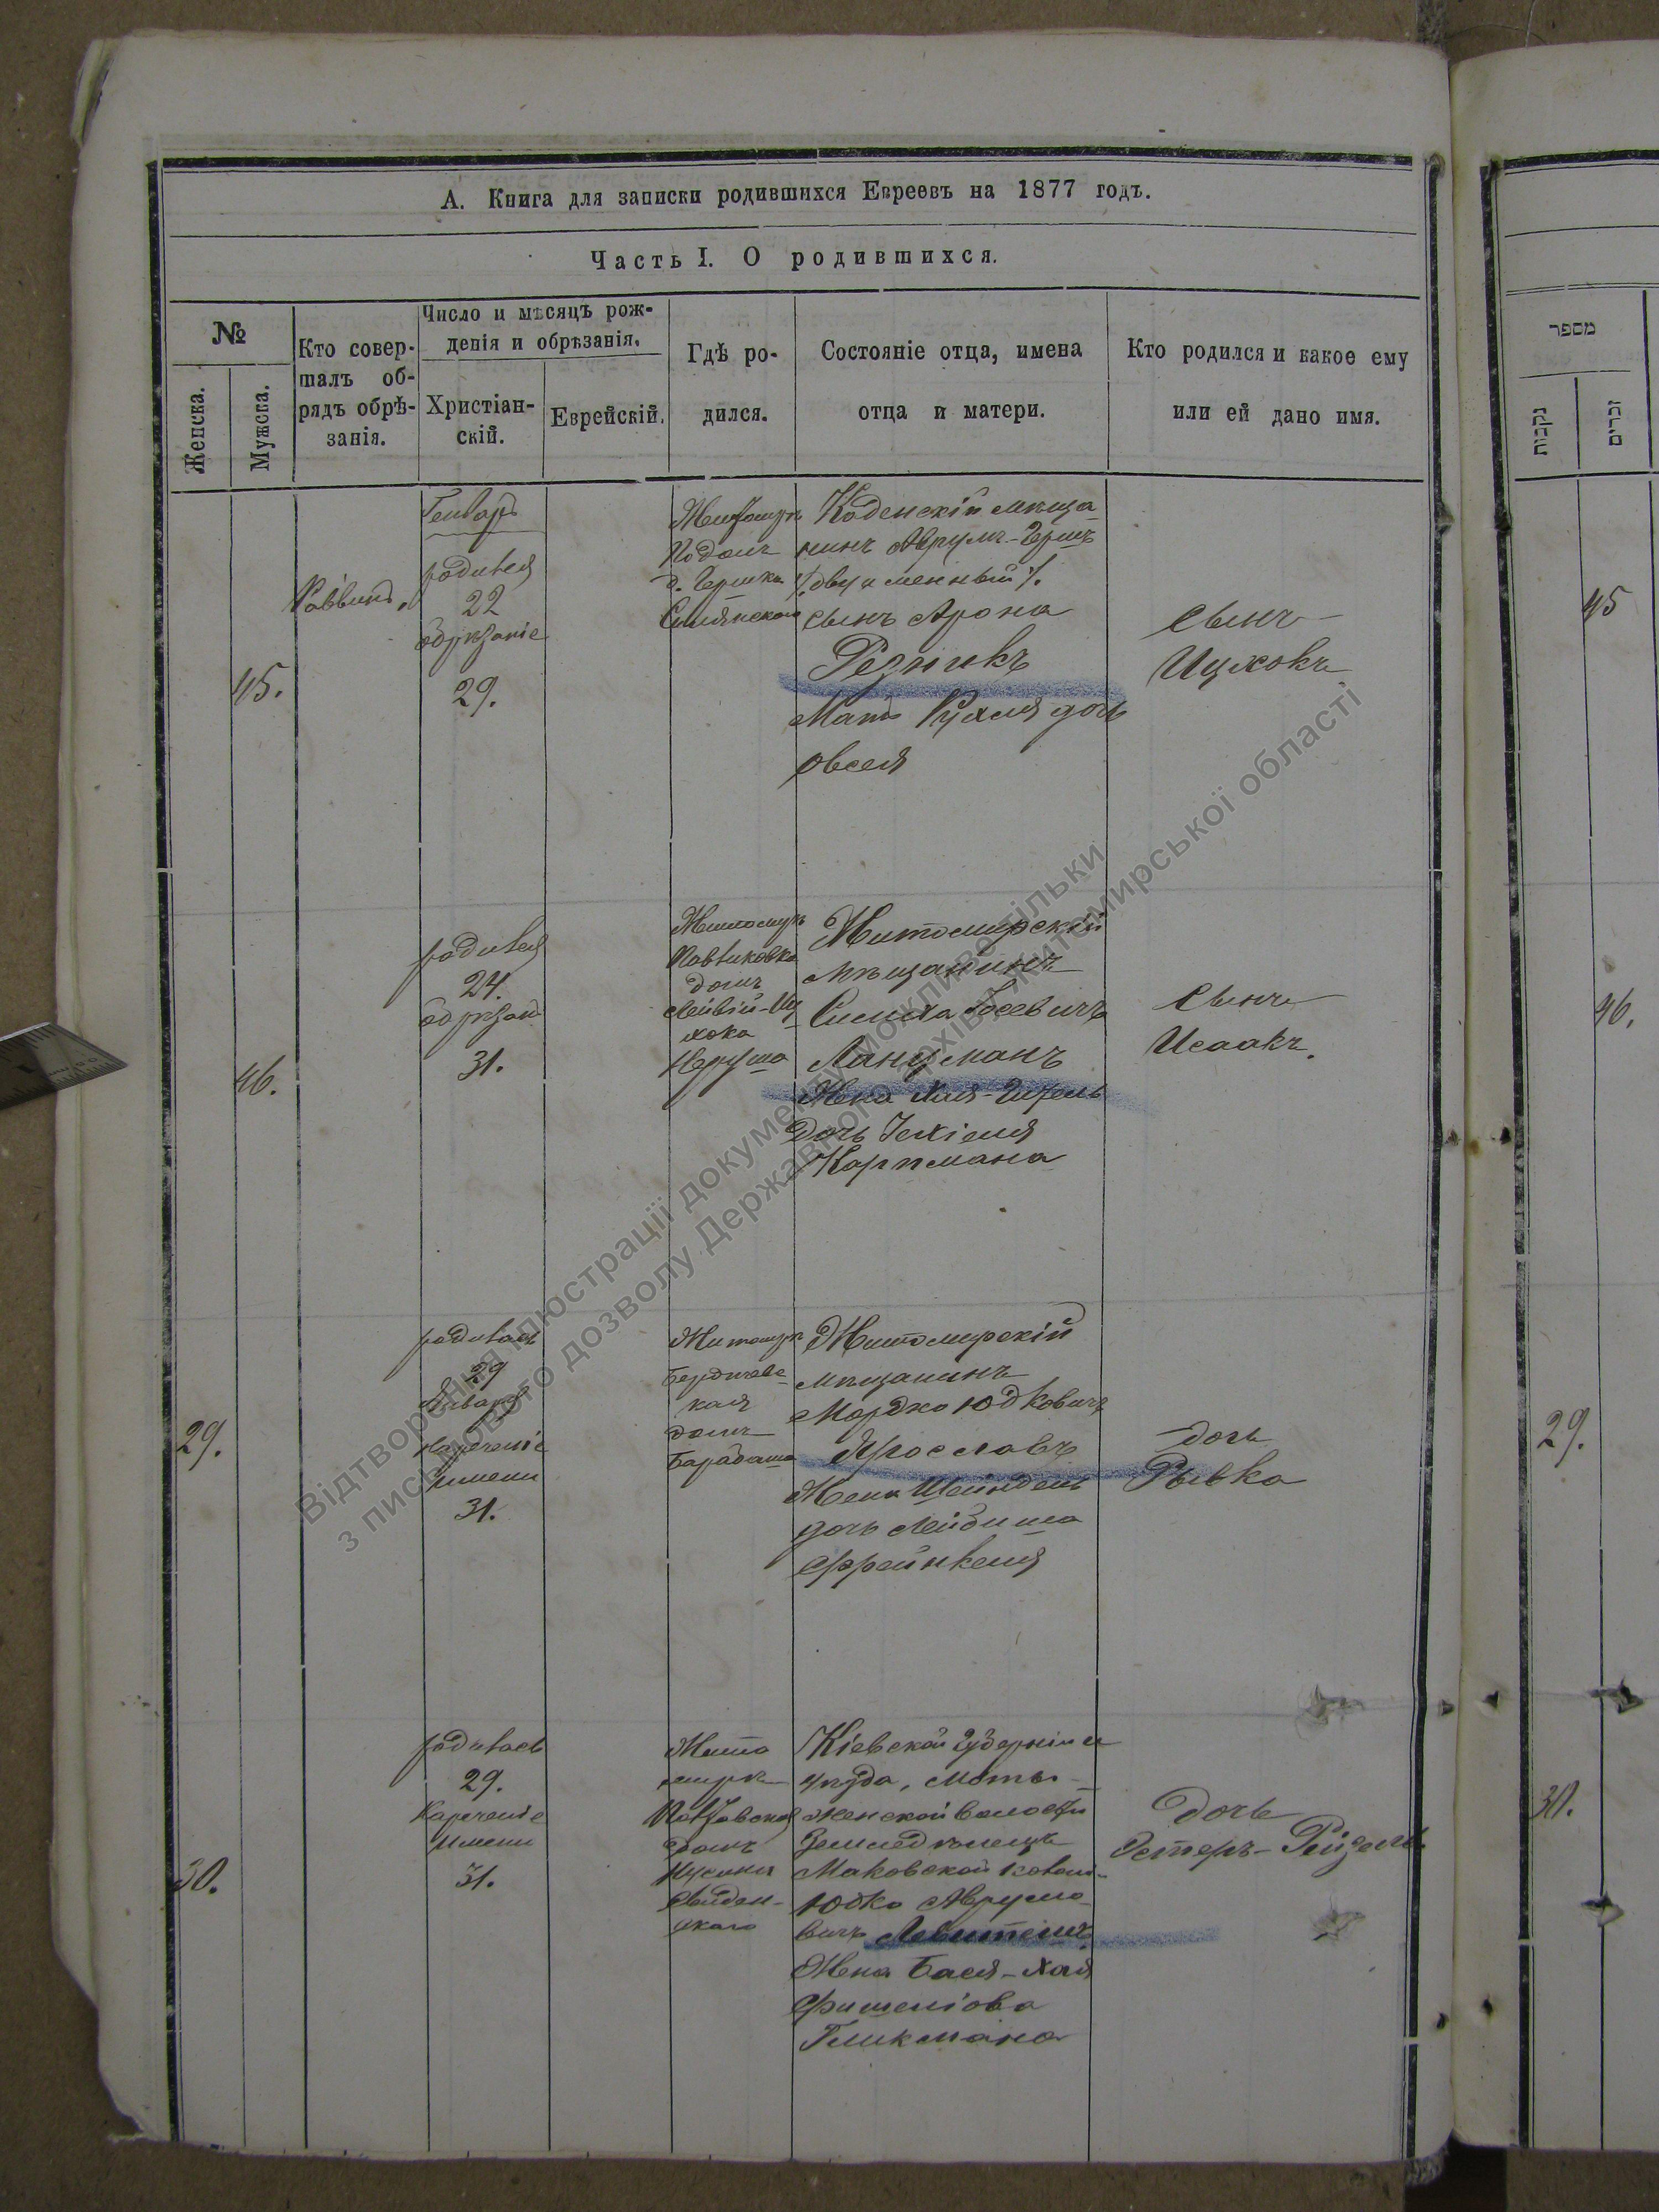 А. Книга для записки родившихся Евреевъ на 1877 годъ.
Часть I. О родившихся.
№
Женска.
Мужска.
Кто совер-
шалъ об-
рядъ обрѣ-
занія.
Число и мѣсяцъ рож-
денія и обрѣзанія.
Христіан-
скій.
Еврейскій.
Гдѣ ро-
дился.
Состояніе отца, имена
отца и матери.
Кто родился и какое ему
или ей дано имя.
45.
Раввинъ
Генварь
родился
22
обрѣзаніе
29.
Житомиръ
Подолъ
д. Гершка
Коденскій мѣща-
нинъ Аврумъ-Гершъ
/двуименный/.
сынъ Арона
Резникъ
Мать Рухля дочь
Овсея
сынъ
Ицхокъ
46.
родился
24.
обрѣзан
31.
Житомиръ
домъ
Лейбы-Иц
хока
Житомирскій
мѣщанинъ
Симха Іосевичъ
Ланцманъ
Жена Хая-Гитель
дочь Іехіеля
Карпмана
сынъ
Исаакъ.
29.
родилась
29
Января
нареченіе
имени
31.
Житомиръ
Бердичевс
кая
домъ
Барабаша
Житомирскій
мѣщанинъ
Мордко Юдковичъ
Ярославъ
Жена Шейндель
дочь Лейбиша
Френкеля
дочь
Рывка
30.
родилась
29.
Нареченіе
имени
31.
Жито
миръ
домъ
Нусина
Свиден-
цкаго
Кіевской губерніи и
уѣзда, Моты-
женской волости
Земледѣлецъ
Маковской колон-
Юдко Аврумо
вичъ Левитенъ
Жена Бася-Хая
Фишеліова
Гликмана
дочь
Эстеръ-Рейзель
מספר
נקבות
זכרים
45
46.
29.
30.
Відтворення ілюстрації документу можливе тільки
з письмового дозволу Державного архіву Житомирської області